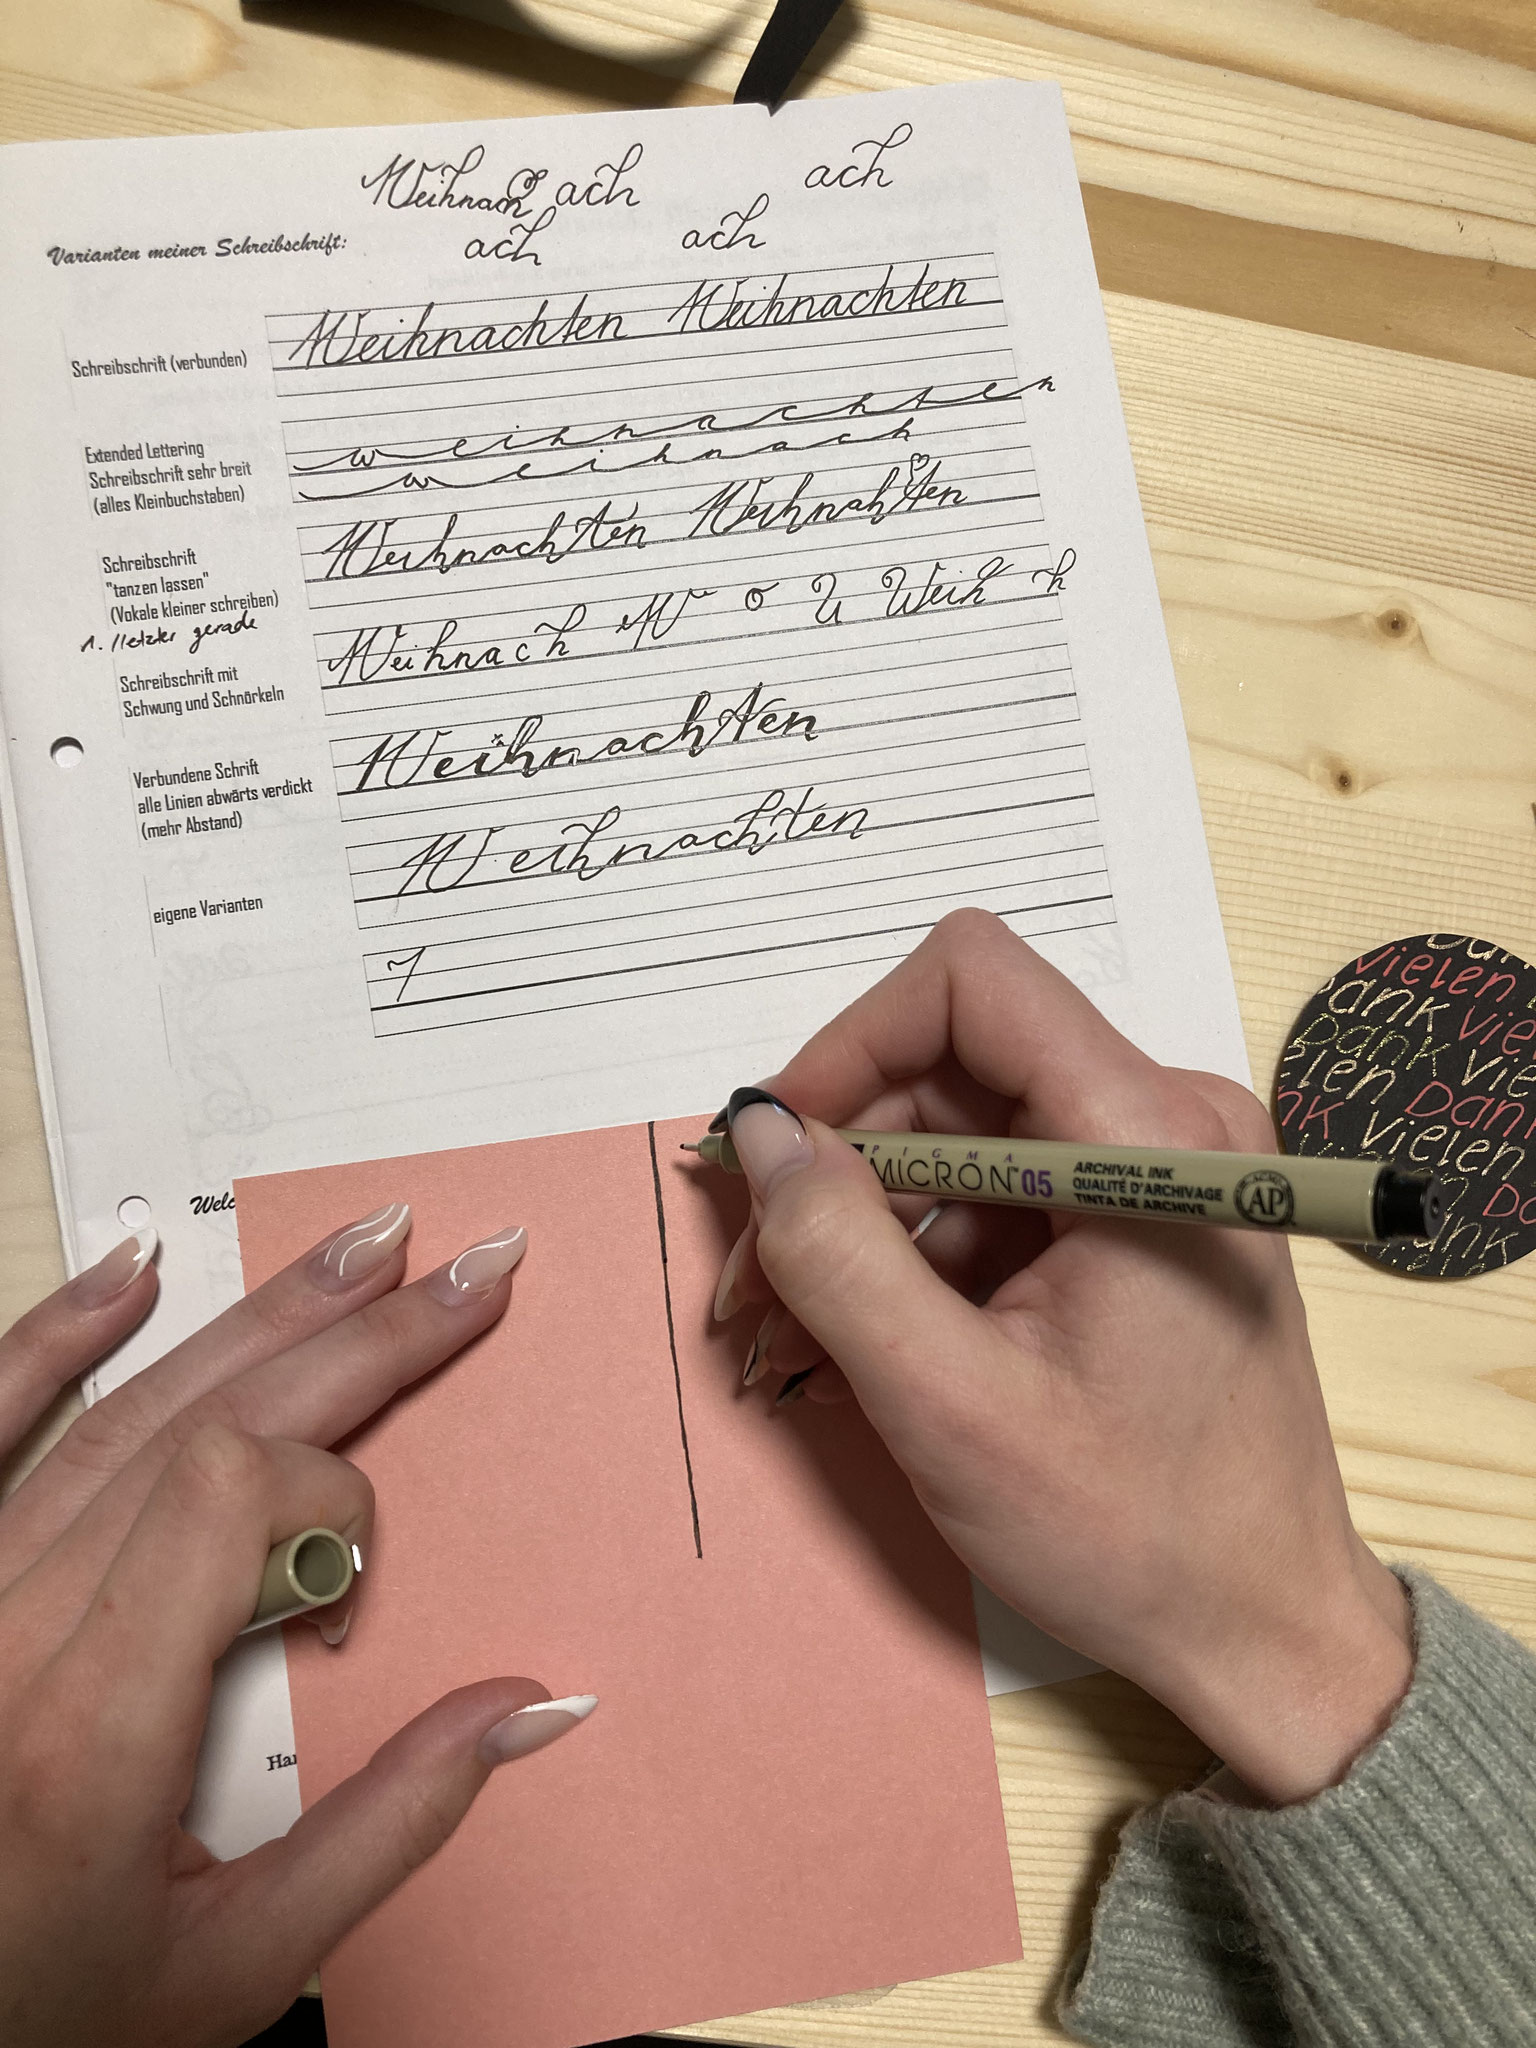 ach ach
ach ach
Varianten meiner Schreibschrift:
Weihnachten Weihnachten
Schreibschrift (verbunden)
weihnachten
Extended Lettering
Schreibschrift sehr breit
(alles Kleinbuchstaben)
weihnach
Weihnachten
Schreibschrift
"tanzen lassen"
(Vokale kleiner schreiben)
1. /letzter gerade
Weihnach W o U Weih h
Schreibschrift mit
Schwung und Schnörkeln
Weihnachten
Verbundene Schrift
alle Linien abwärts verdickt
(mehr Abstand)
Weihnachten
eigene Varianten
PIGMA
MICRON 05
ARCHIVAL INK
QUALITÉ D'ARCHIVAGE
TINTA DE ARCHIVE
AP
Vielen
Dank
Dank
Vielen